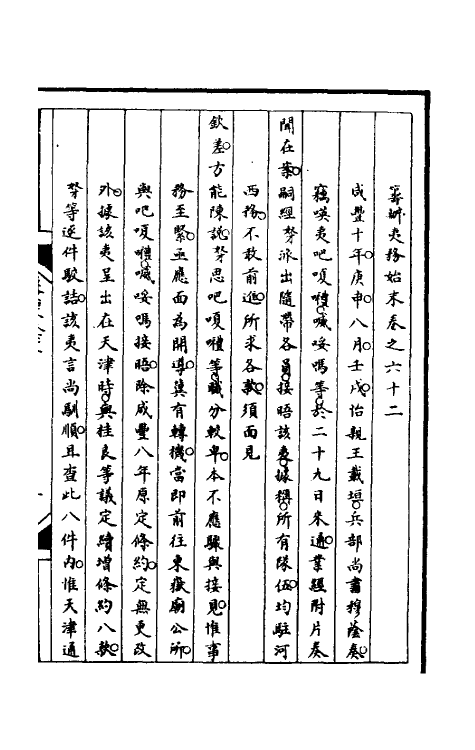 籌辦夷務始末卷之六十二
咸豐十年庚申八月壬戌怡親王載垣兵部尚書穆蔭奏
竊嘆夷吧嗄嘈喊妥嗎等於二十九日來通業經附片奏
聞在案嗣經等派出隨帶各員接晤該夷據稱所有隊伍均駐河
西務不敢前進所求各款須面見
欽差方能陳說等思吧嗄嘈等職分較卑本不應驟與接見惟事
務至緊亟應面為開導冀有轉機當即前往東嶽廟公所
與吧嗄嘈喊妥嗎接晤除咸豐八年原定條約定無更改
外據該夷呈出在天津時與桂良等議定續增條約八款
等等逐件駁詰該夷言尚馴順且查此八件內惟天津通